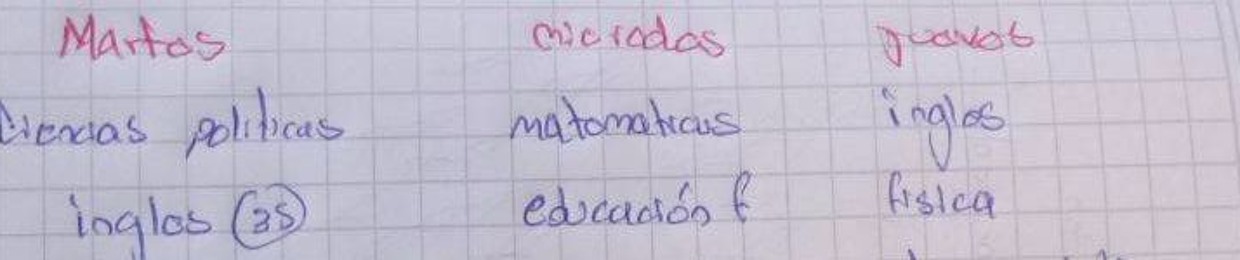 Martes miercoles jueves
Ciencias politicas matematicas ingles
ingles (35) educación f fisica